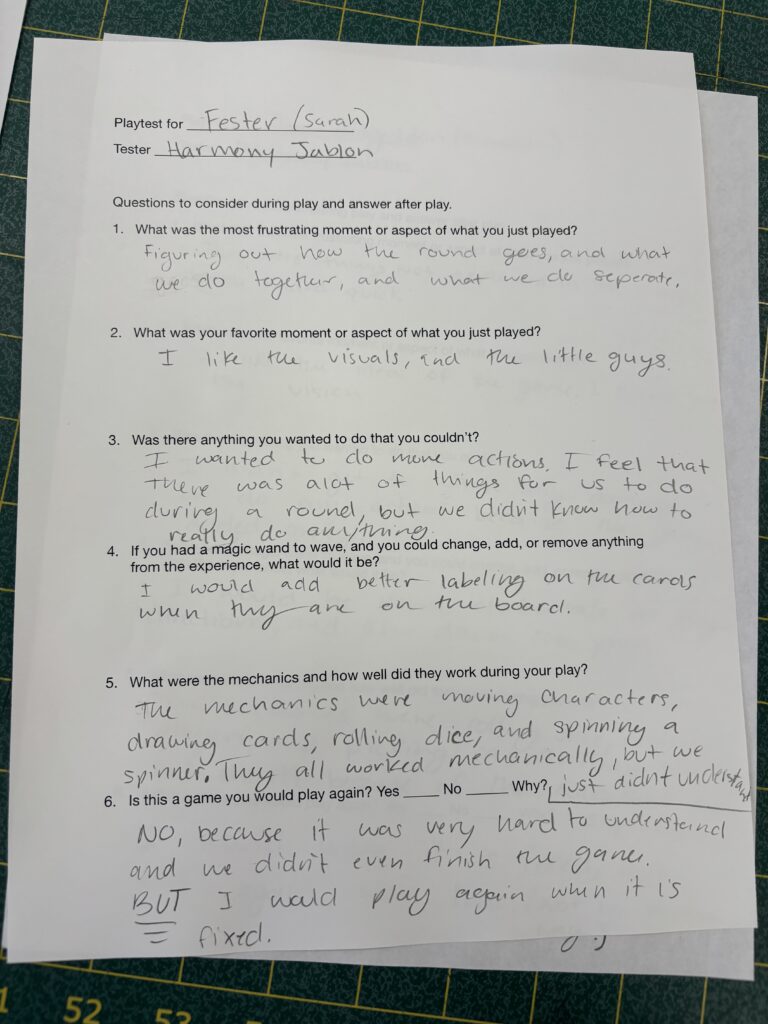 Playtest for Fester (Sarah)
Tester Harmony Jablon
Questions to consider during play and answer after play.
1. What was the most frustrating moment or aspect of what you just played?
Figuring out how the round goes, and what
we do together, and what we do seperate.
2. What was your favorite moment or aspect of what you just played?
I like the visuals, and the little guys.
3. Was there anything you wanted to do that you couldn't?
I wanted to do more actions. I feel that
there was alot of things for us to do
during a round, but we didn't know how to
really do anything.
4. If you had a magic wand to wave, and you could change, add, or remove anything
from the experience, what would it be?
I would add better labeling on the cards
when they are on the board.
5. What were the mechanics and how well did they work during your play?
The mechanics were moving characters,
drawing cards, rolling dice, and spinning a
spinner. They all worked mechanically, but we
just didn't understand
6. Is this a game you would play again? Yes ____ No ____ Why?
NO, because it was very hard to understand
and we didn't even finish the game.
BUT I would play again when it is
fixed.
52
53